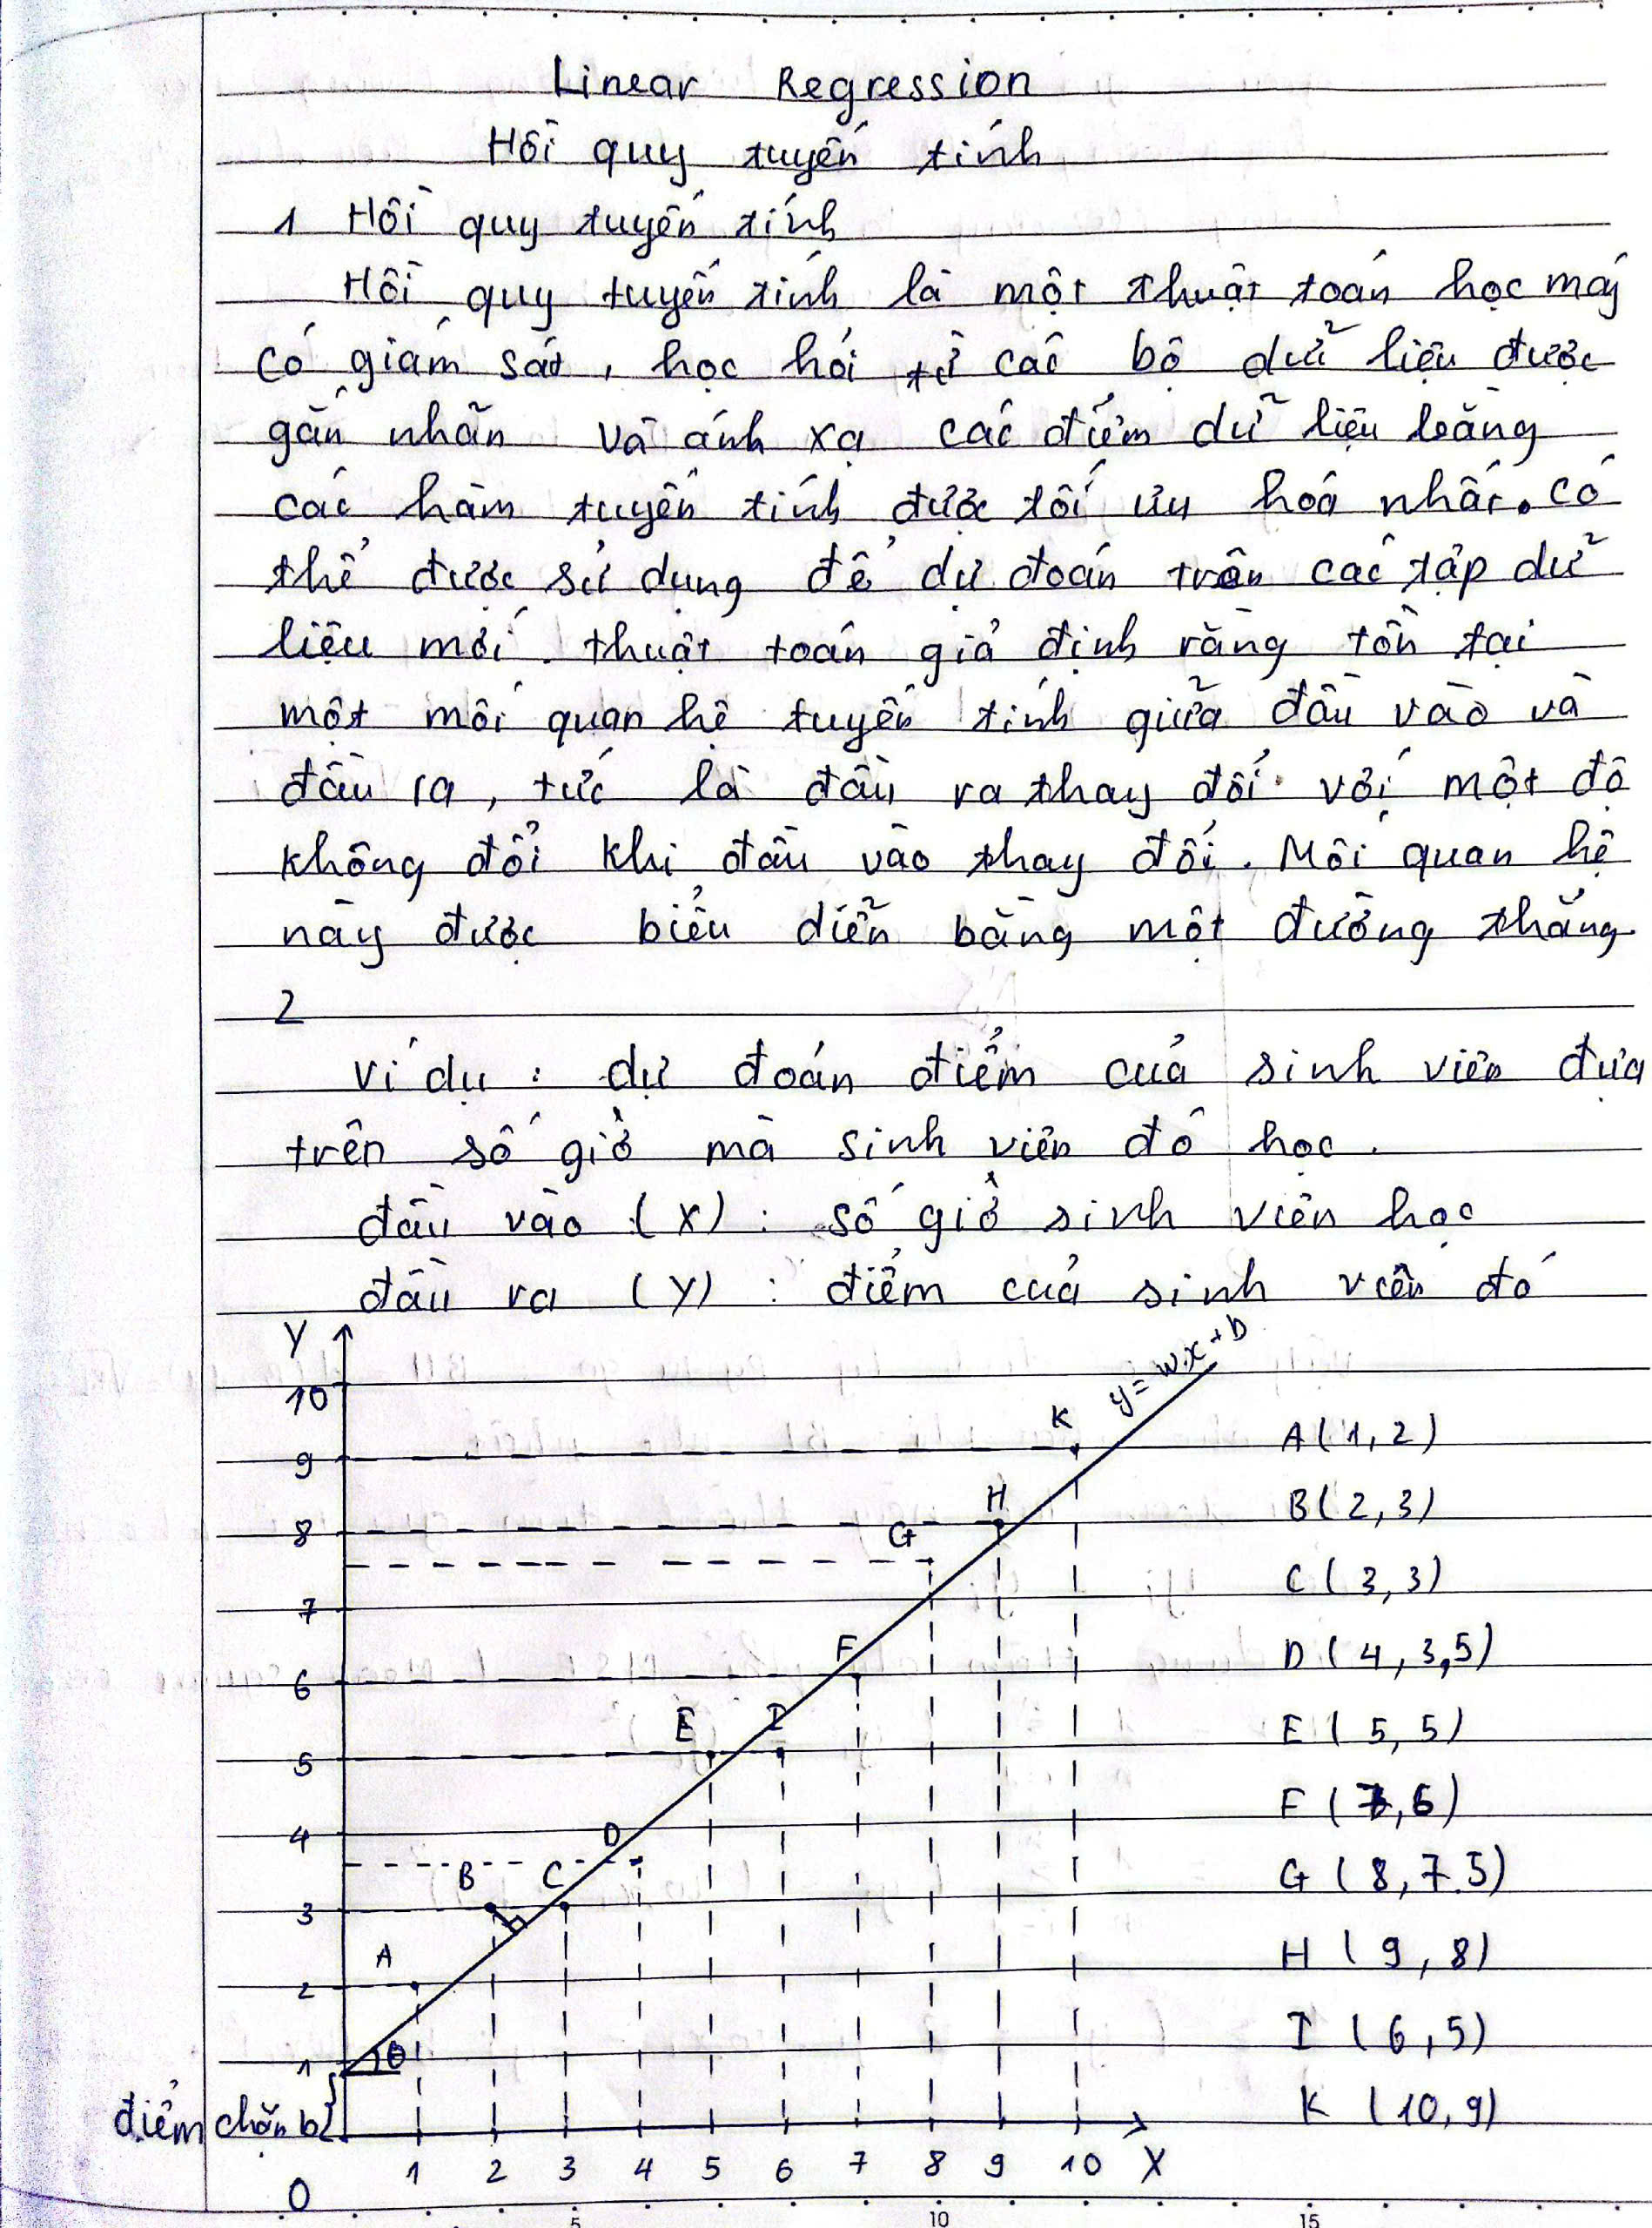 Linear Regression
Hồi quy tuyến tính
1 Hồi quy tuyến tính
Hồi quy tuyến tính là một thuật toán học máy
có giám sát, học hỏi từ các bộ dữ liệu được
gắn nhãn và ánh xạ các điểm dữ liệu bằng
các hàm tuyến tính được tối ưu hoá nhất. có
thể được sử dụng để dự đoán trên các tập dữ
liệu mới. thuật toán giả định rằng tồn tại
một mối quan hệ tuyến tính giữa đầu vào và
đầu ra, tức là đầu ra thay đổi với một độ
không đổi khi đầu vào thay đổi. Mối quan hệ
này được biểu diễn bằng một đường thẳng
2
ví dụ : dự đoán điểm của sinh viên dựa
trên số giờ mà sinh viên đó học.
đầu vào (X) : số giờ sinh viên học
đầu ra (Y) : điểm của sinh viên đó
Y
y = w.x + b
10
K
A(1,2)
9
H
B(2,3)
8
G
C(3,3)
7
F
D(4,3,5)
6
E I
E(5,5)
5
F(7,6)
4
D
B C
G(8,7.5)
3
A
H(9,8)
2
I(6,5)
1 θ
điểm chặn b
K(10,9)
1 2 3 4 5 6 7 8 9 10 X
0
5 10 15